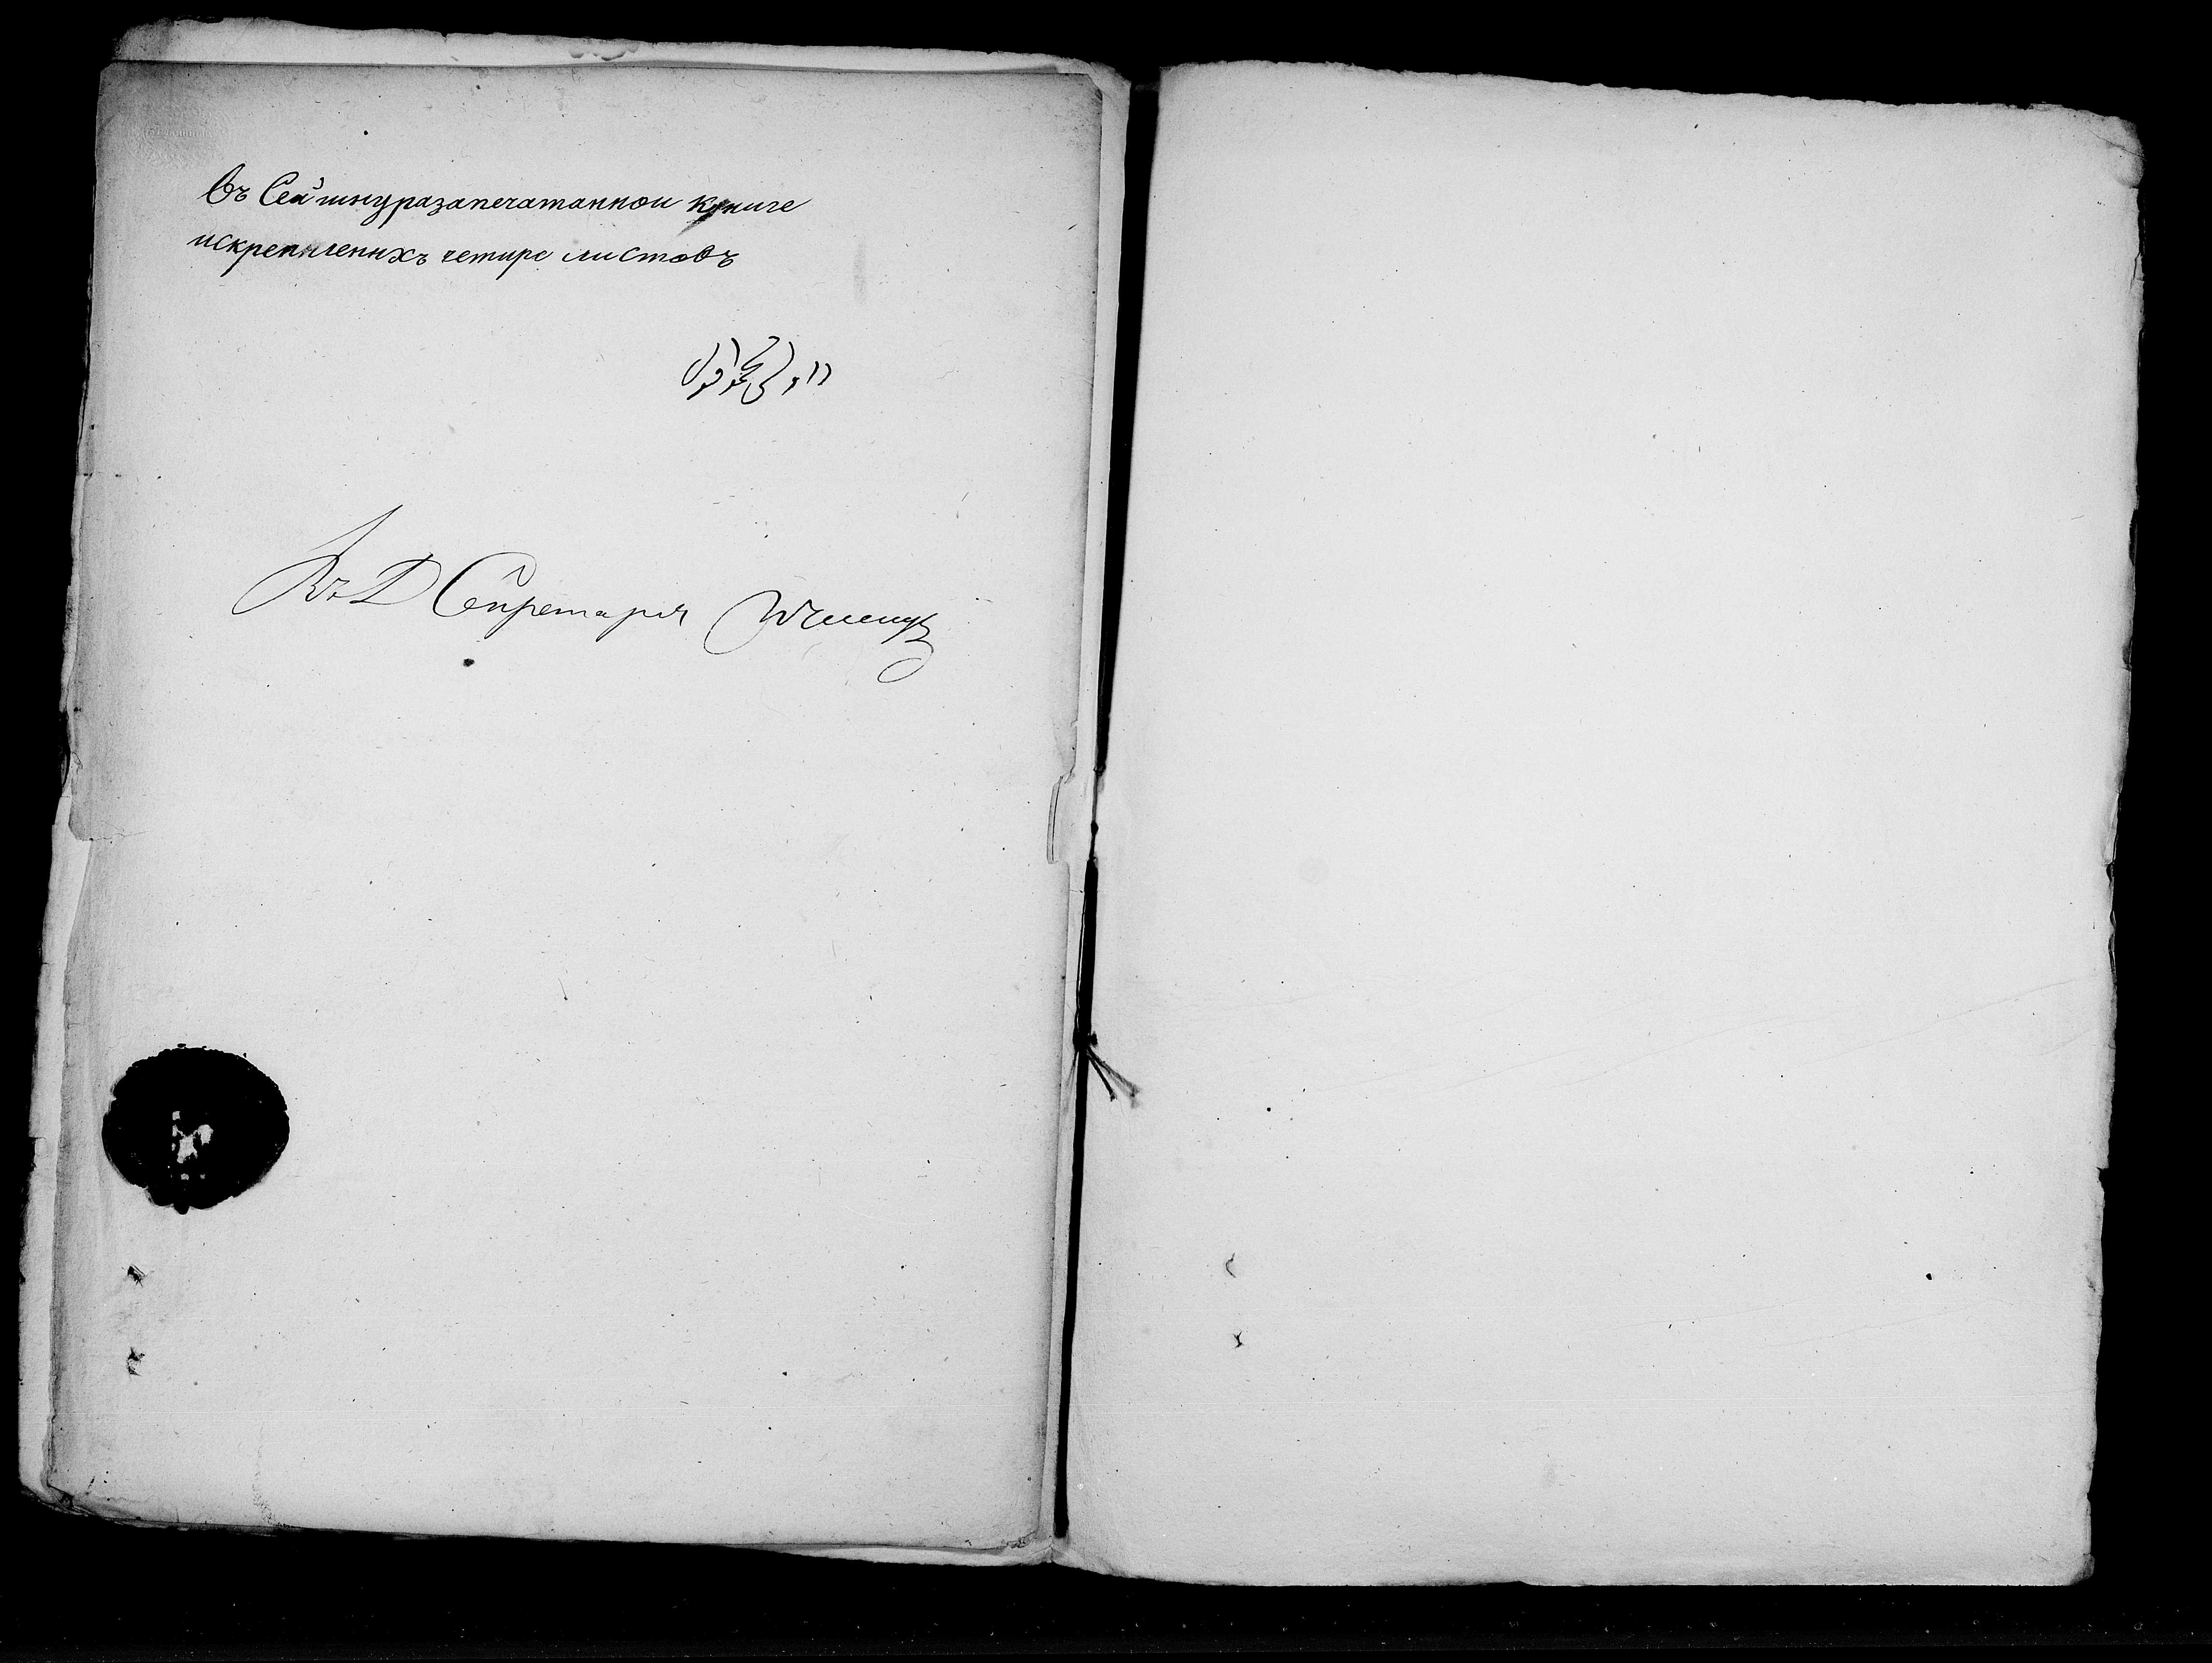 Въ Сей шнуразапечатанной книге
искрепленихъ четире листовъ
ВъД Секретаря